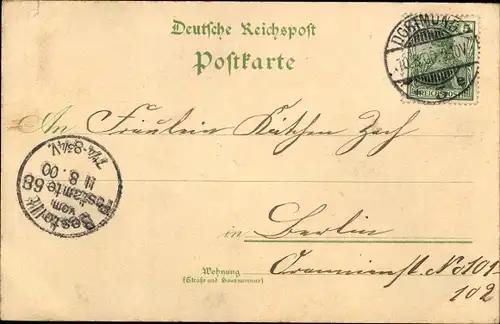 Deutsche Reichspost
Postkarte
DORTMUND
REICHSPOST
5
An Fräulein Käthchen Zech
7¼-8¾N.
11.8.00
Postamte 68
vom
Bestellt
in Berlin
Wohnung
(Straße und Hausnummer)
Oranienst. No 101
102